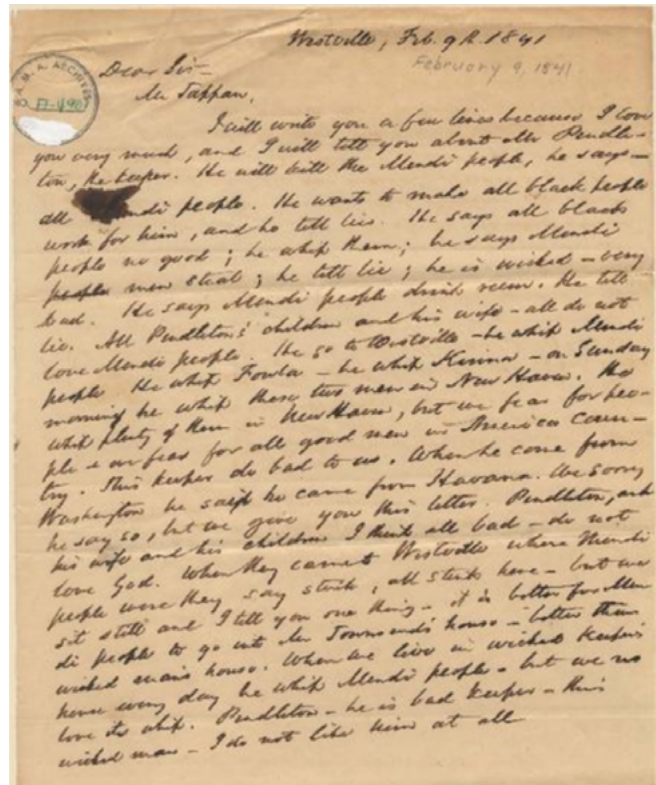 Westville, Feb. 9th 1841
February 9, 1841
A. M. A. ARCHIVES
Dear Sir—
Mr Tappan,
I will write you a few lines because I love
you very much, and I will tell you about Mr Pendle-
ton, the keeper. He will kill the Mendi people, he says—
all Mendi people. He wants to make all black people
work for him, and he tell lie. He says all black
people no good; he whip them; he says Mendi
people men steal; he tell lie; he is wicked — very
bad. He says Mendi people drink rum. He tell
lie. All Pendleton's children and his wife — all do not
love Mendi people. He go to Westville — he whip Mendi
people He whip Fowla — he whip Kinna — on Sunday
morning he whip these two men in New Haven. He
whip plenty of them in New Haven, but we fear for peo-
ple & our fear for all good men in America coun-
try. This keeper do bad to us. When he come from
Washington he said he came from Havana. We sorry
he say so, but we give you this letter. Pendleton, and
his wife and his children I think all bad — do not
love God. When they came to Westville where Mendi
people were they say stink, all stink here — but we
sit still and I tell you one thing — it is better for Men-
di people to go into Mr Townsend's house — better than
wicked man's house. When we live in wicked keeper's
house every day he whip Mendi people — but we no
love the whip. Pendleton — he is bad keeper — this
wicked man — I do not like him at all